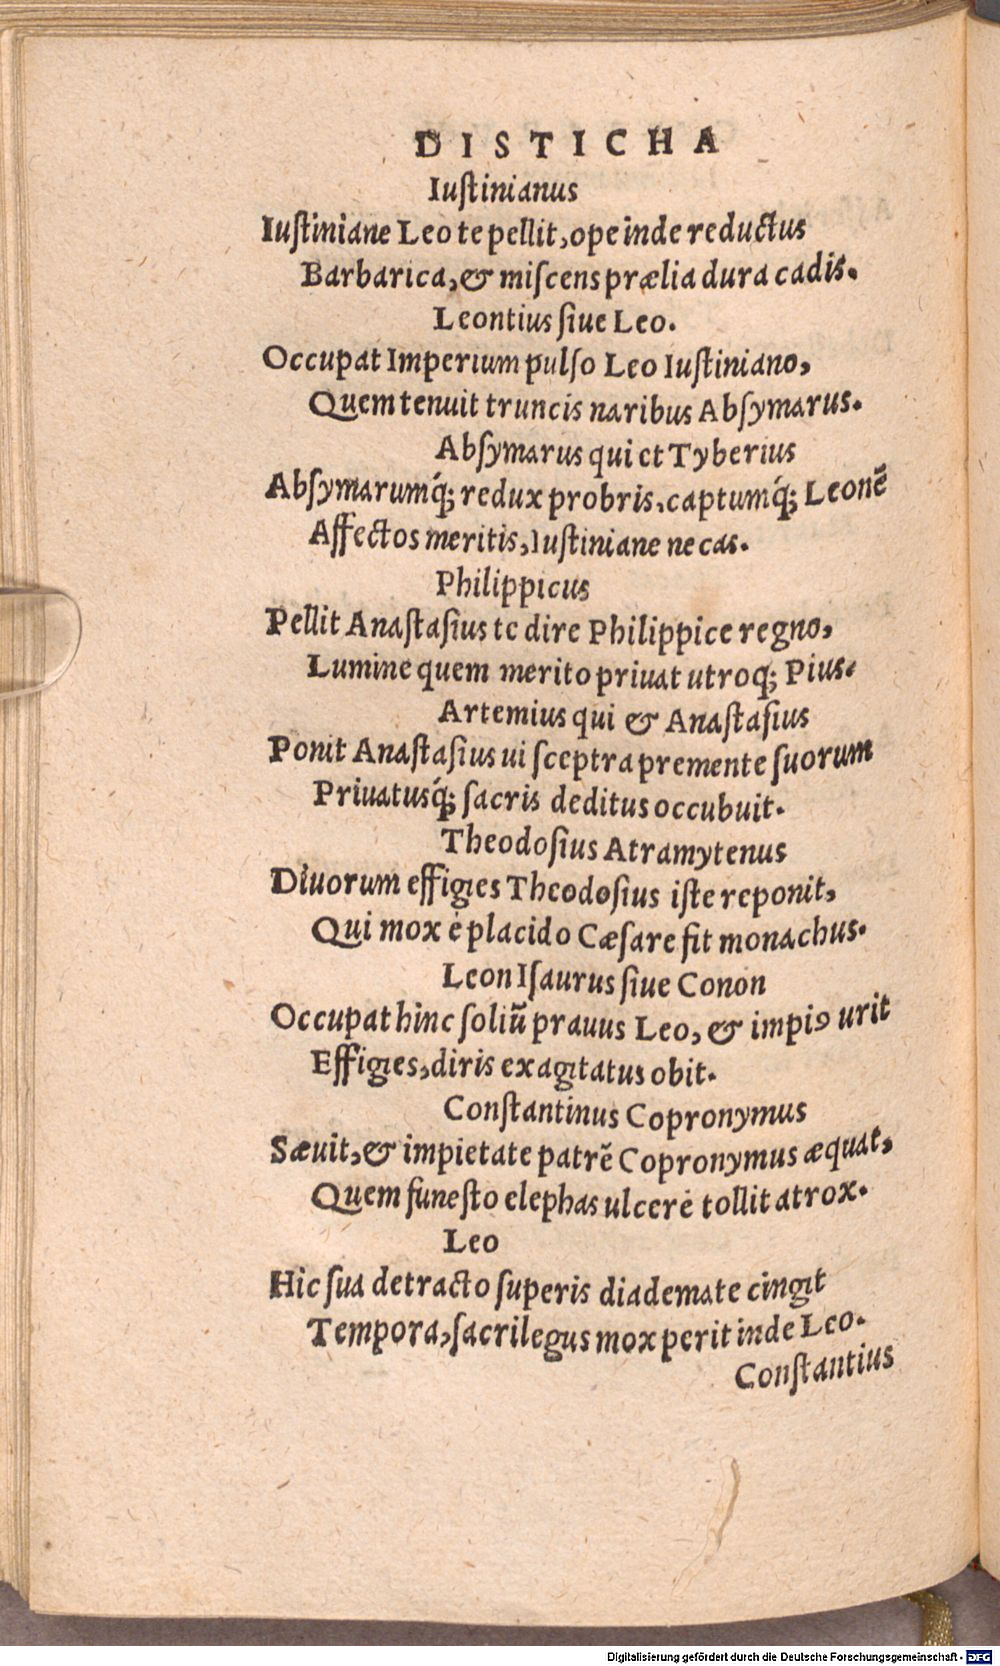 DISTICHA
Iuſtinianus
Iuſtiniane Leo te pellit, ope inde reductus
Barbarica, & miſcens prælia dura cadis.
Leontius ſiue Leo.
Occupat Imperium pulſo Leo Iuſtiniano,
Quem tenuit truncis naribus Abſymarus.
Abſymarus qui et Tyberius
Abſymarumq́; redux probris, captumq́; Leonē
Affectos meritis, Iuſtiniane necas.
Philippicus
Pellit Anaſtaſius te dire Philippice regno,
Lumine quem merito priuat utroq; Pius.
Artemius qui & Anaſtaſius
Ponit Anaſtaſius ui ſceptra premente ſuorum
Priuatusq́; ſacris deditus occubuit.
Theodoſius Atramytenus
Diuorum effigies Theodoſius iſte reponit,
Qui mox è placido Cæſare fit monachus.
Leon Iſaurus ſiue Conon
Occupat hinc ſoliũ prauus Leo, & impiꝰ urit
Effigies, diris exagitatus obit.
Conſtantinus Copronymus
Sæuit, & impietate patrē Copronymus æquat,
Quem funeſto elephas ulcere tollit atrox.
Leo
Hic ſua detracto ſuperis diademate cingit
Tempora, ſacrilegus mox perit inde Leo.
Conſtantius
Digitalisierung gefördert durch die Deutsche Forschungsgemeinschaft - DFG